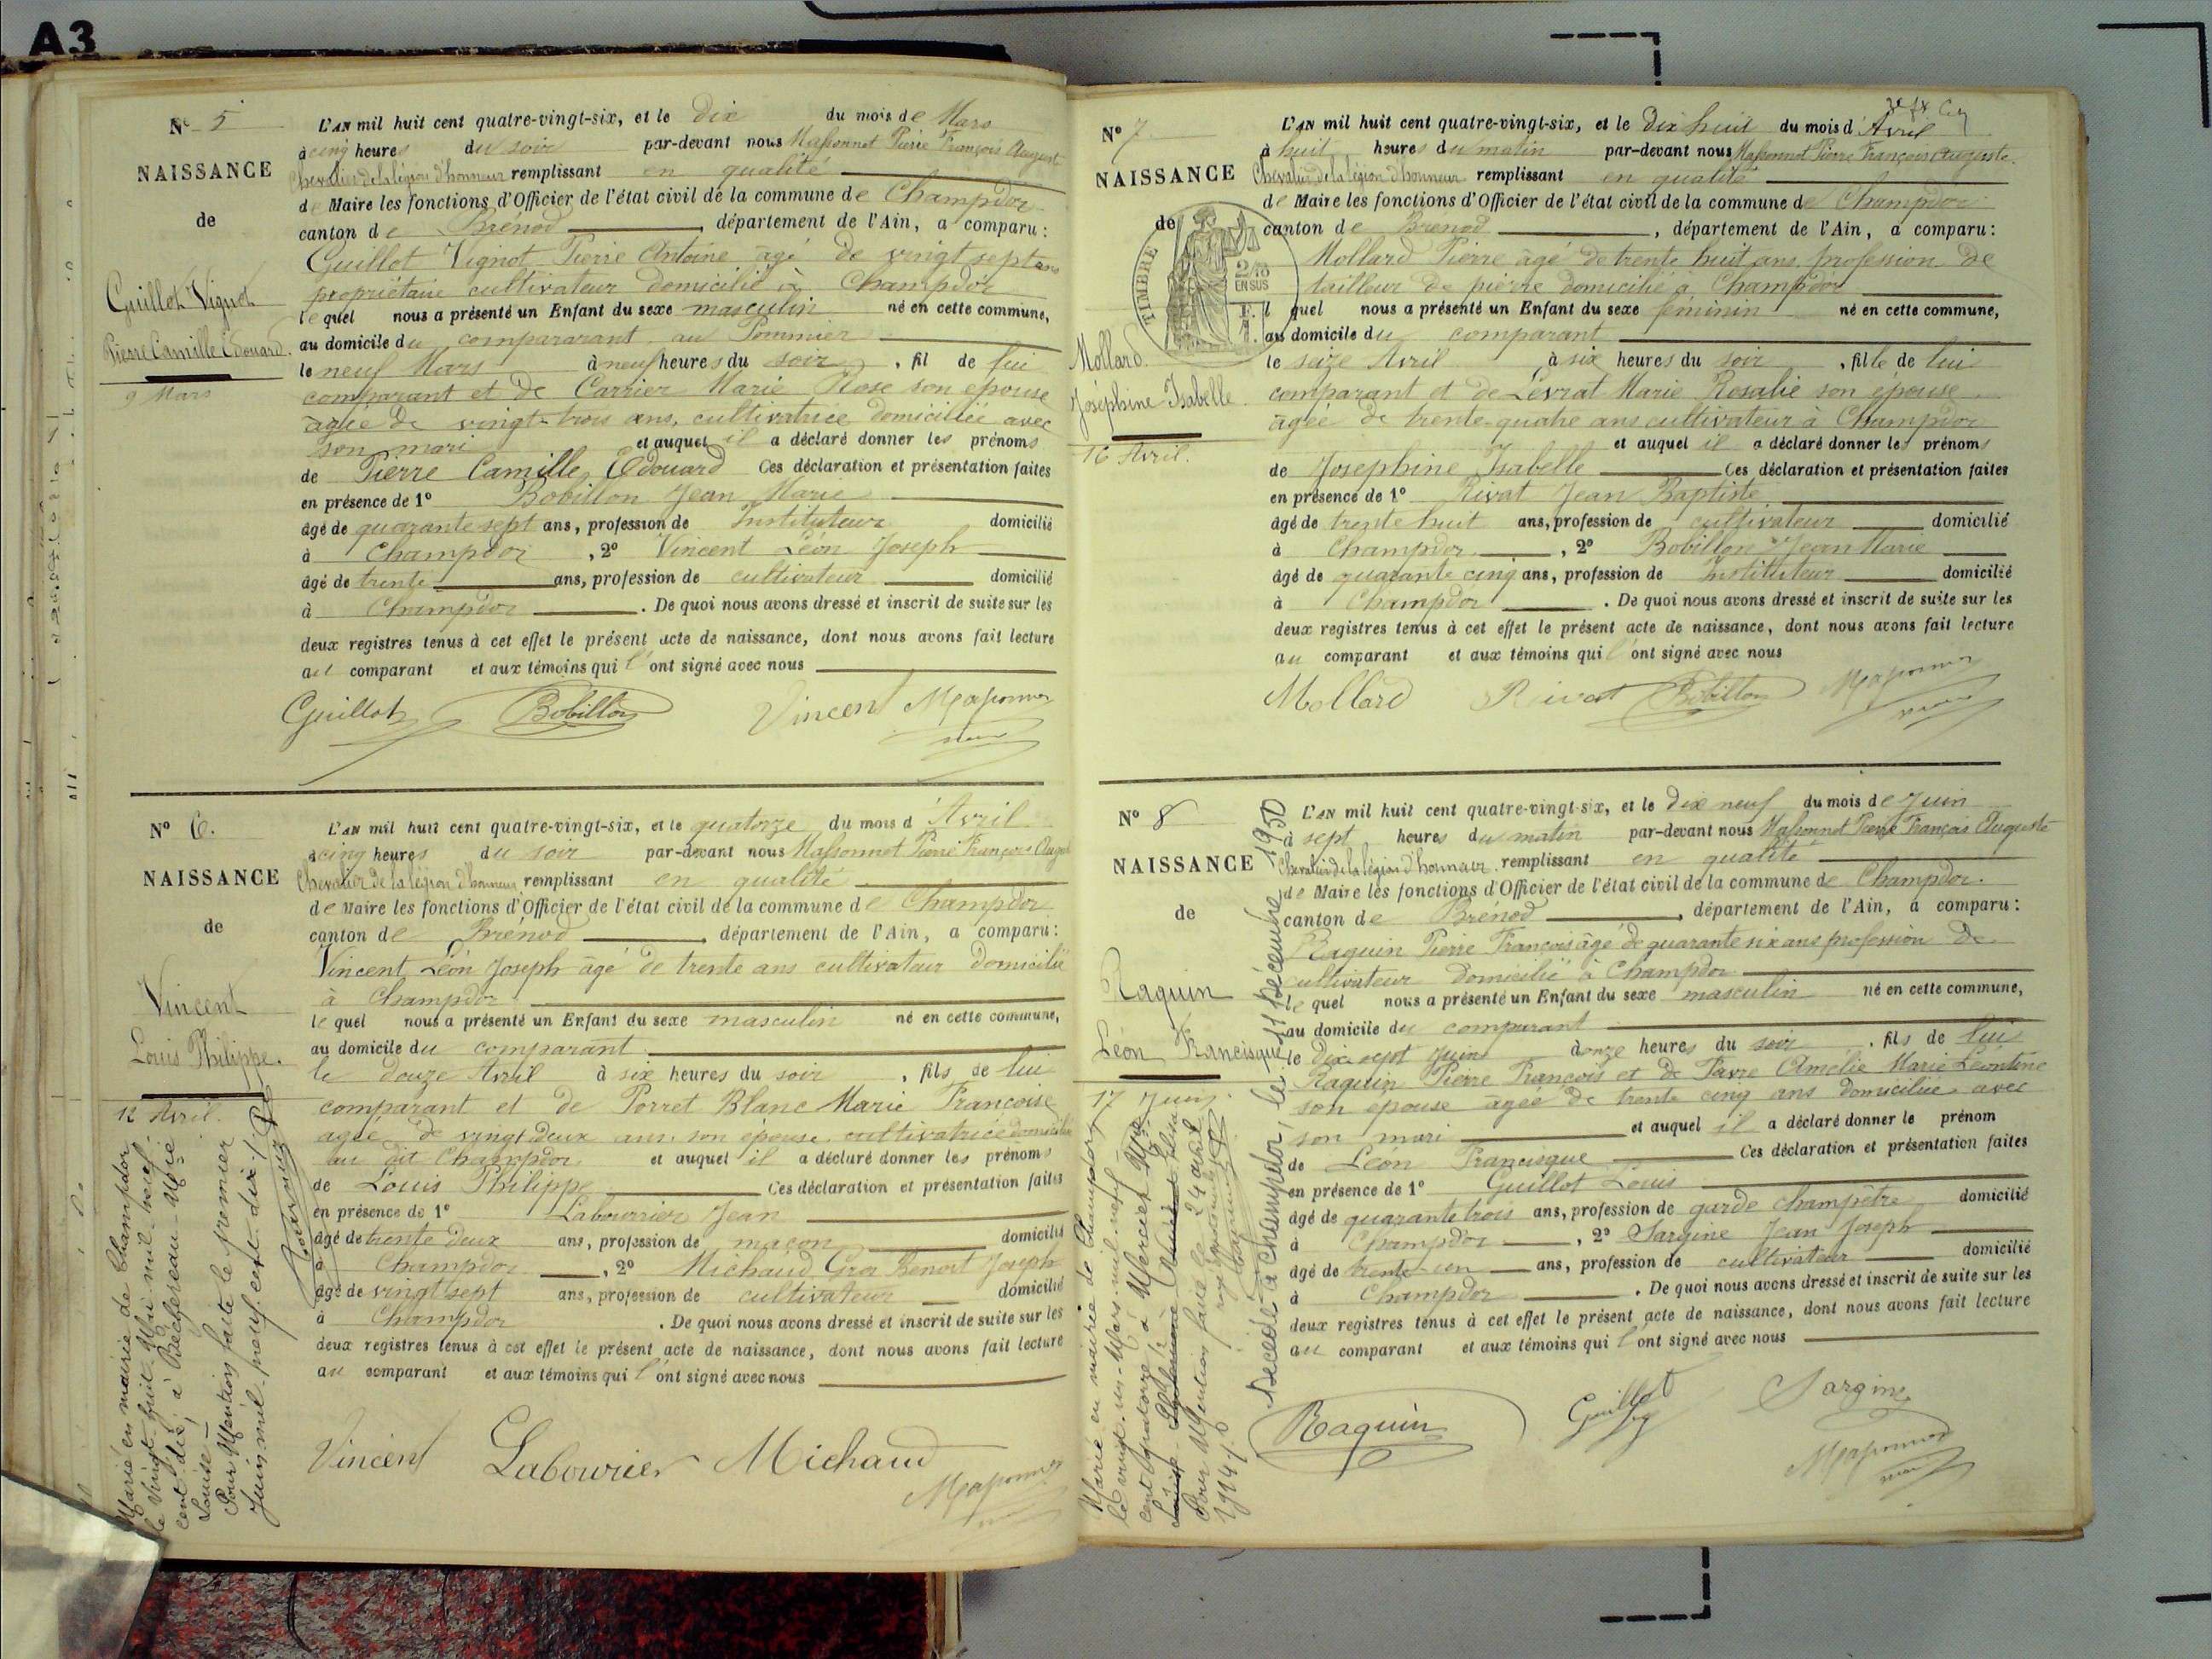 A3
N° 5
NAISSANCE
de
Guillot Vignot
Pierre Camille Edouard.
9 Mars
L'AN mil huit cent quatre-vingt-six, et le dix du mois de Mars
à cinq heures du soir par-devant nous Massonnet Pierre François August
Chevalier de la légion d'honneur remplissant en qualité
de Maire les fonctions d'Officier de l'état civil de la commune de Champdor
canton de Brénod, département de l'Ain, a comparu:
Guillot Vignot Pierre Antoine âgé de vingt sept ans
propriétaire cultivateur domicilié à Champdor
lequel nous a présenté un Enfant du sexe masculin né en cette commune,
au domicile du compararant au Pommier
le neuf Mars à neuf heures du soir, fil de lui
comparant et de Carrier Marie Rose son épouse
agée de vingt-trois ans, cultivatrice domiciliée avec
son mari et auquel il a déclaré donner les prénoms
de Pierre Camille Edouard Ces déclaration et présentation faites
en présence de 1° Bobillon Jean Marie
âgé de quarante sept ans, profession de Instituteur domicilié
à Champdor, 2° Vincent Léon Joseph
âgé de trente ans, profession de cultivateur domicilié
à Champdor. De quoi nous avons dressé et inscrit de suite sur les
deux registres tenus à cet effet le présent acte de naissance, dont nous avons fait lecture
au comparant et aux témoins qui l'ont signé avec nous
Guillot Bobillon Vincent Massonnet
maire
N° 6.
NAISSANCE
de
Vincent
Louis Philippe.
12 Avril.
L'AN mil huit cent quatre-vingt-six, et le quatorze du mois d'Avril
à cinq heures du soir par-devant nous Massonnet Pierre François August
Chevalier de la légion d'honneur remplissant en qualité
de Maire les fonctions d'Officier de l'état civil de la commune de Champdor
canton de Brénod, département de l'Ain, a comparu:
Vincent Léon Joseph âgé de trente ans cultivateur domicilié
à Champdor
lequel nous a présenté un Enfant du sexe masculin né en cette commune,
au domicile du comparant
le douze Avril à six heures du soir, fils de lui
comparant et de Porret Blanc Marie Françoise
agée de vingt deux ans son épouse cultivatrice domiciliée
au dit Champdor et auquel il a déclaré donner les prénoms
de Louis Philippe Ces déclaration et présentation faites
en présence de 1° Labourier Jean
âgé de trente deux ans, profession de maçon domicilié
à Champdor, 2° Michaud Gros Benoit Joseph
âgé de vingt sept ans, profession de cultivateur domicilié
à Champdor. De quoi nous avons dressé et inscrit de suite sur les
deux registres tenus à cet effet le présent acte de naissance, dont nous avons fait lecture
au comparant et aux témoins qui l'ont signé avec nous
Vincent Labourier Michaud
Massonnet
maire
Marié en mairie de Champdor
le vingt huit Mai mil neuf
cent dix, à Bechereau Marie
Louise
Pour Mention faite le premier
Juin mil neuf cent dix
N° 7
NAISSANCE
de
TIMBRE
2/10
EN SUS
Mollard
Joséphine Isabelle
16 Avril.
L'AN mil huit cent quatre-vingt-six, et le dix huit du mois d'Avril
à huit heures du matin par-devant nous Massonnet Pierre François Auguste
Chevalier de la légion d'honneur remplissant en qualité
de Maire les fonctions d'Officier de l'état civil de la commune de Champdor
canton de Brénod, département de l'Ain, a comparu:
Mollard Pierre âgé de trente huit ans profession de
tailleur de pierre domicilié à Champdor
l quel nous a présenté un Enfant du sexe féminin né en cette commune,
au domicile du comparant
le seize Avril à six heures du soir, fille de lui
comparant et de Levrat Marie Rosalie son épouse
agée de trente-quatre ans cultivateur à Champdor
et auquel il a déclaré donner les prénoms
de Josephine Isabelle Ces déclaration et présentation faites
en présence de 1° Rivat Jean Baptiste
âgé de trente huit ans, profession de cultivateur domicilié
à Champdor, 2° Bobillon Jean Marie
âgé de quarante cinq ans, profession de Instituteur domicilié
à Champdor. De quoi nous avons dressé et inscrit de suite sur les
deux registres tenus à cet effet le présent acte de naissance, dont nous avons fait lecture
au comparant et aux témoins qui l'ont signé avec nous
Mollard Rivat Bobillon Massonnet
maire
N° 8
NAISSANCE
de
Raquin
Léon Francisque
17 Juin.
L'AN mil huit cent quatre-vingt-six, et le dix neuf du mois de Juin
à sept heures du matin par-devant nous Massonnet Pierre François Auguste
Chevalier de la légion d'honneur remplissant en qualité
de Maire les fonctions d'Officier de l'état civil de la commune de Champdor.
canton de Brénod, département de l'Ain, a comparu:
Raquin Pierre François âgé de quarante six ans profession de
cultivateur domicilié à Champdor
lequel nous a présenté un Enfant du sexe masculin né en cette commune,
au domicile du comparant
le dix-sept Juin à onze heures du soir, fils de lui
Raquin Pierre François et de Favre Amélie Marie Léontine
son épouse agée de trente cinq ans domiciliée avec
son mari et auquel il a déclaré donner le prénom
de Léon Francisque Ces déclaration et présentation faites
en présence de 1° Guillot Louis
âgé de quarante trois ans, profession de garde champêtre domicilié
à Champdor, 2° Sargine Jean Joseph
âgé de trente-un ans, profession de cultivateur domicilié
à Champdor. De quoi nous avons dressé et inscrit de suite sur les
deux registres tenus à cet effet le présent acte de naissance, dont nous avons fait lecture
au comparant et aux témoins qui l'ont signé avec nous
Raquin Guillot Sargine
Massonnet
maire
Marié en mairie de Champdor
le vingt un Mars mil neuf
cent quatorze à Mercier Mie
Pour Mention faite le 24 avril
1914
Décédé à Champdor, le 11 Décembre 1950